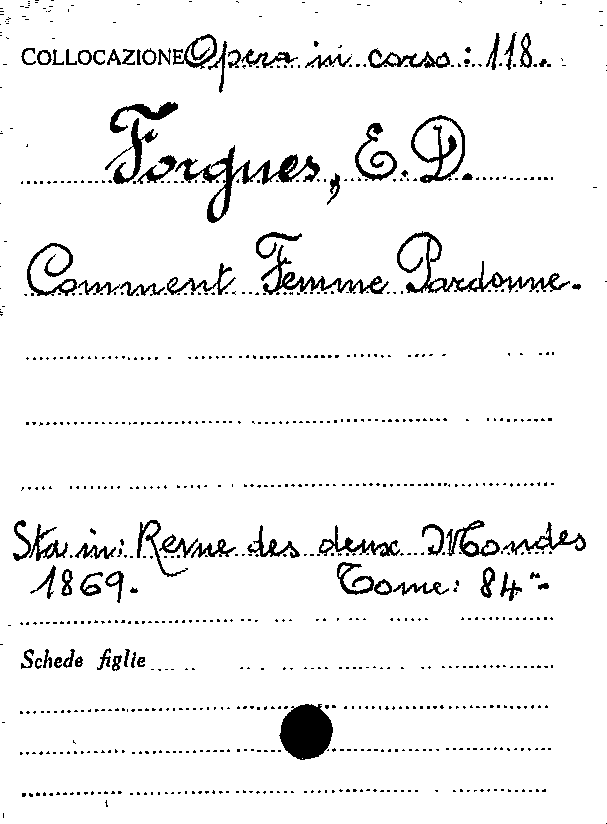 COLLOCAZIONE Opera in corso: 118.
Forgues, E. D.
Comment Femme Pardonne.
Sta in: Revue des deux Mondes
1869. Tome: 84"-
Schede figlie